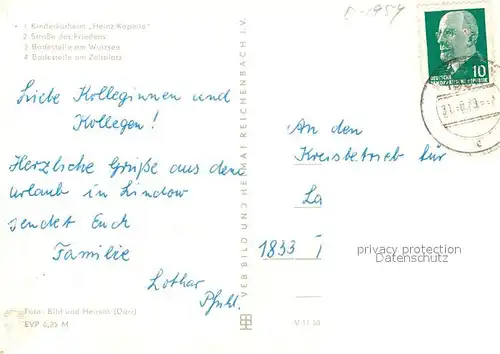 1 Kinderkurheim „Heinz Kapelle"
2 Straße des Friedens
3 Badestelle am Wutzsee
4 Badestelle am Zeltplatz
Liebe Kolleginnen und
Kollegen!
Herzliche Grüße aus dem
Urlaub in Lindow
sendet Euch
Familie
Lothar
Pfuhl.
Foto: Bild und Heimat (Darr)
EVP 0,25 M
VEB BILD UND HEIMAT REICHENBACH I. V.
10
DEUTSCHE
DEMOKRATISCHE REPUBLIK
An den
Kreisbetrieb für
La
1833
privacy protection
Datenschutz